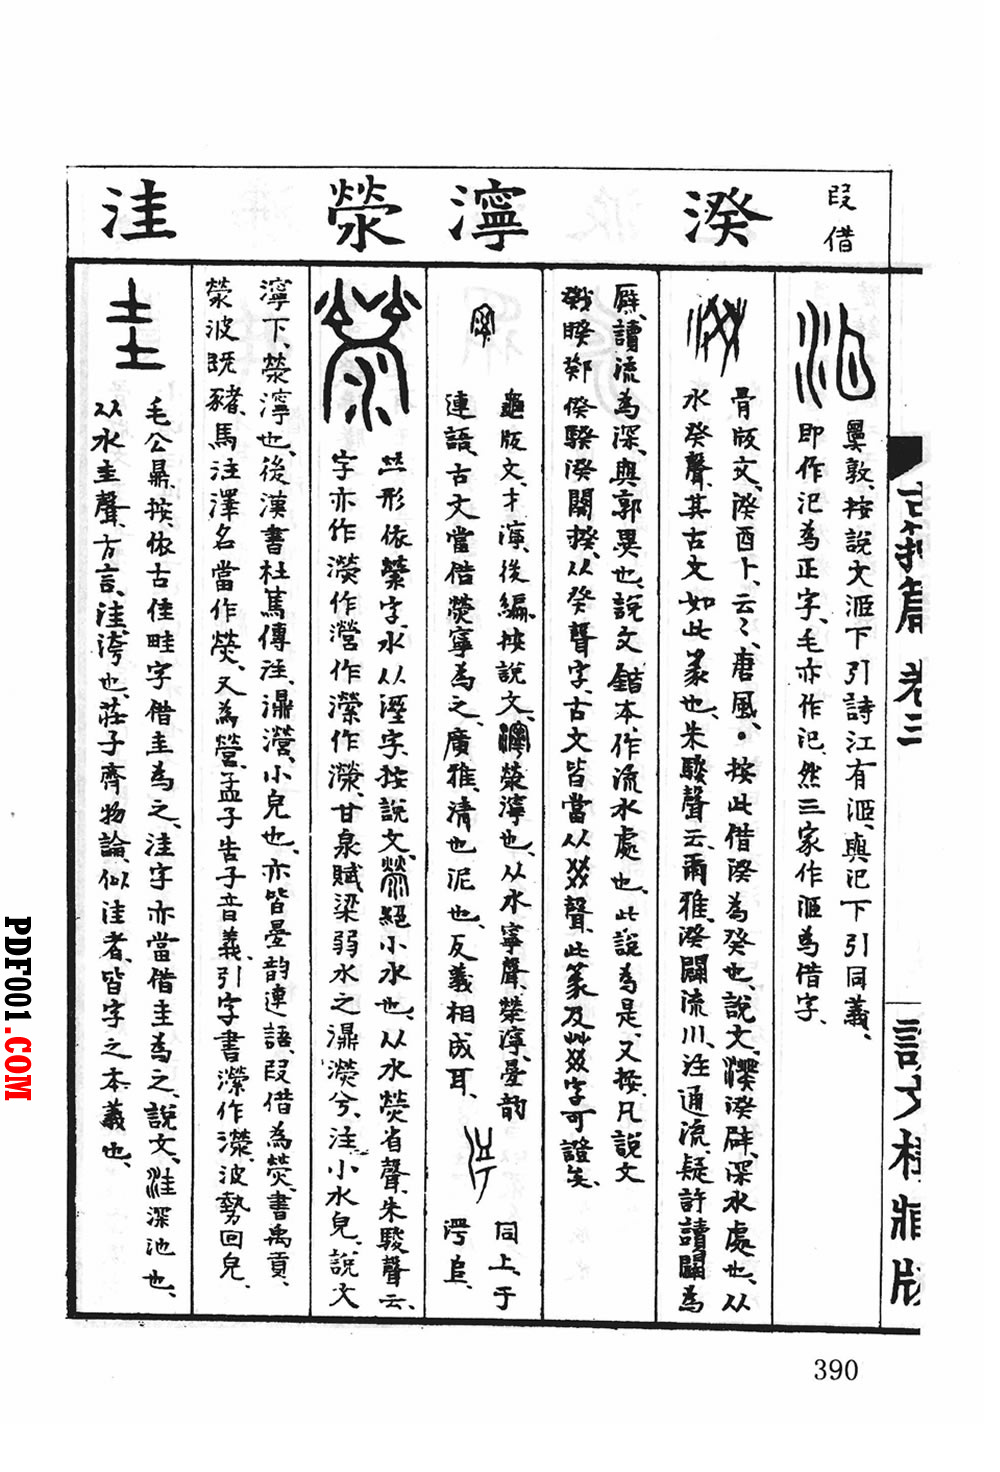 叚借
湀
濘
滎
洼
鼻敦、按說文洍下引詩江有洍、與汜下引同義、
即作汜為正字、毛亦作汜、然三家作洍為借字、
骨版文、湀酉卜、云〻、唐風、·按此借湀為癸也、說文、湀湀辟、深水處也、从
水癸聲、其古文如此篆也、朱駿聲云、爾雅、湀闢流川、注通流、疑許讀闢為
厤、讀流為深、與郭異也、說文鍇本、作流水處也、此說為是、又按、凡說文
戣睽鄈傒騤湀闋揆、从癸聲字、古文皆當从癸聲、此篆及癸字可證矣、
龜版文、才濘、後編、按說文、濘滎濘也、从水寧聲、滎濘、疊韵
連語、古文當借滎寧為之、廣雅、清也泥也、反義相成耳、
同上、于
濘𠂤、
此形依縈字、水从溼字、按說文、滎絕小水也、从水熒省聲、朱駿聲云、
字亦作濴作瀯作瀠作濙、甘泉賦、梁弱水之濎濴兮、注、小水皃、說文
濘下、滎濘也、後漢書杜篤傳注、濎瀯、小皃也、亦皆疊韵連語、叚借為熒、書禹貢、
滎波既豬、馬注、澤名、當作熒、又為營、孟子告子音義、引字書、瀠作濴、波勢回皃、
毛公鼎、按、依古佳畦字借圭為之、洼字亦當借圭為之、說文、洼深池也、
从水圭聲、方言、洼、洿也、莊子齊物論、似洼者、皆字之本義也、
古籀篇 卷三
說文樓藏版
390
PDF001.COM